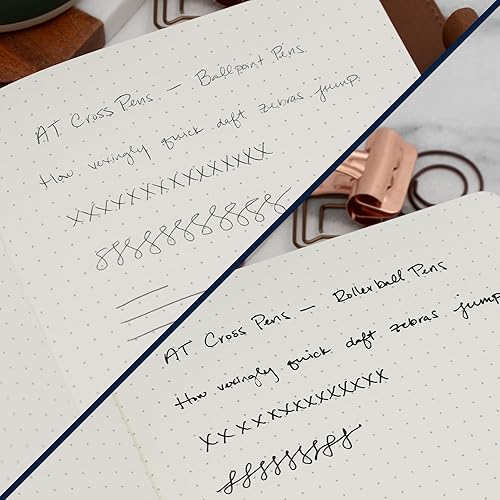 AT Cross Pens — Ballpoint Pens.
How vexingly quick daft zebras jump.
XXXXXXXXXXXXXXXX
AT Cross Pens — Rollerball Pens
How vexingly quick daft zebras jump
XXXXXXXXXXXXXX